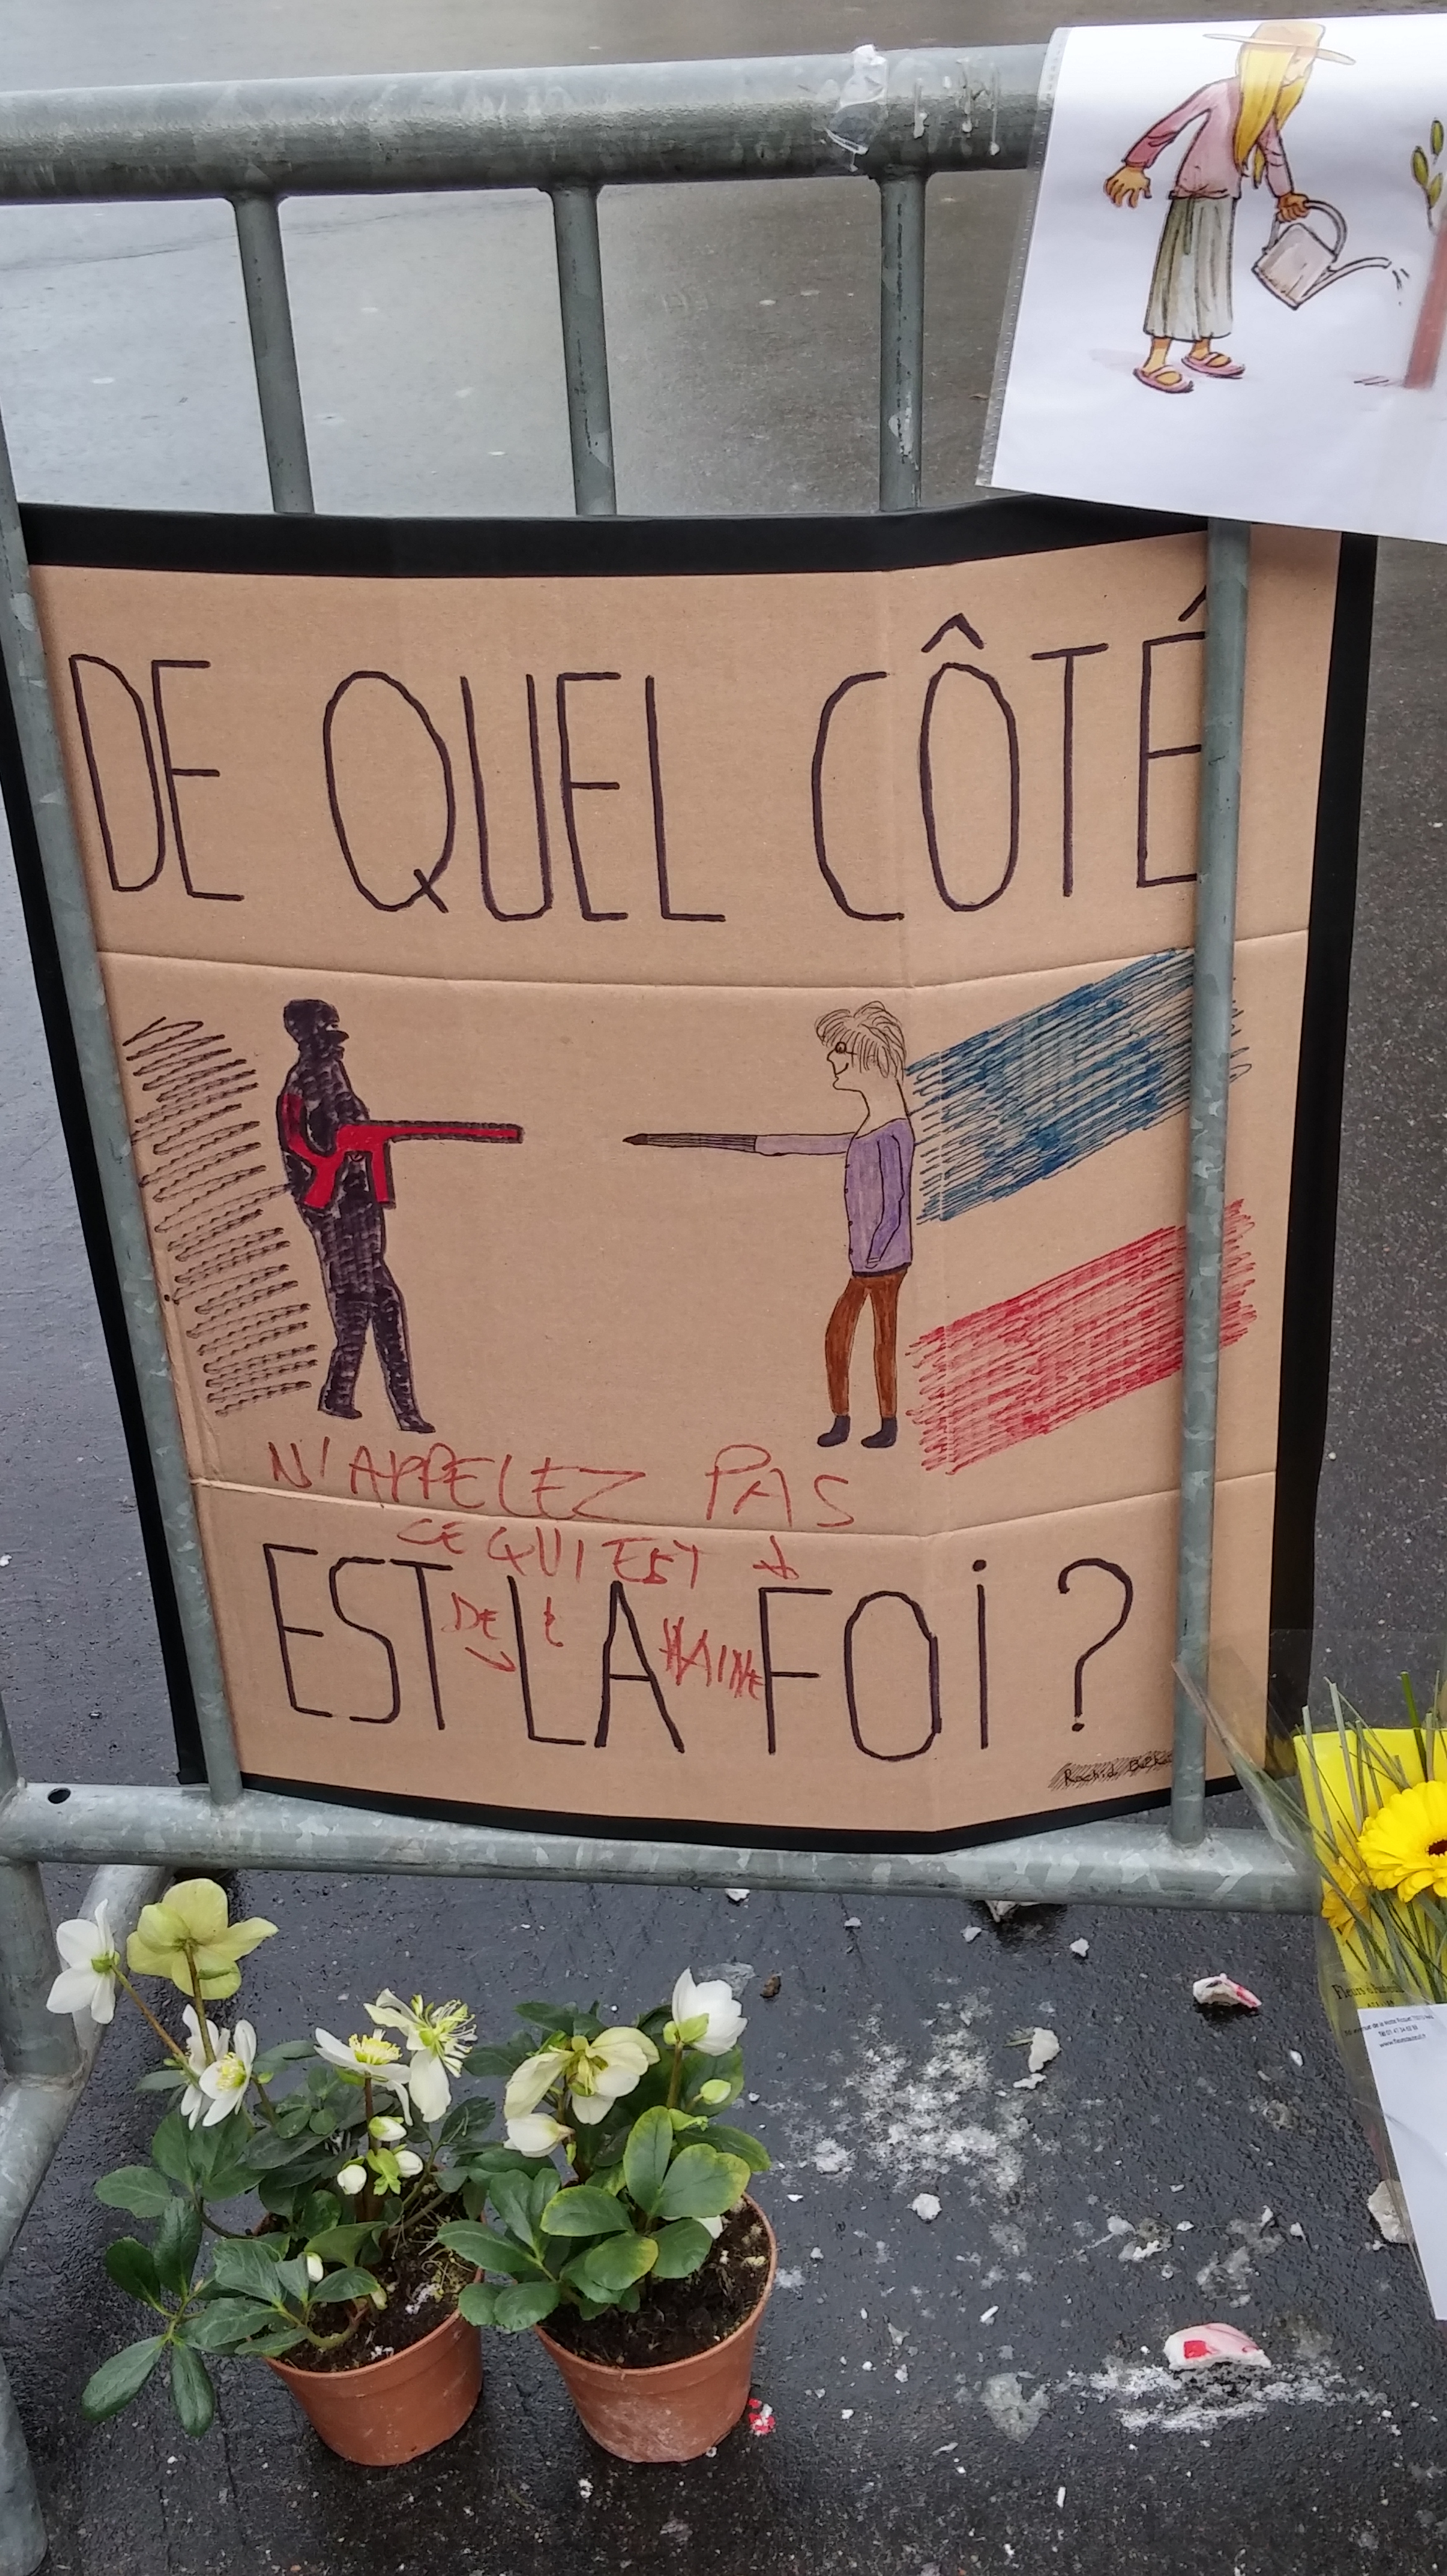 DE QUEL CÔTÉ
N'APPELEZ PAS
CE QUI EST
EST LA FOI ?
DE
HAINE
Rachid
Fleurs d'Auteuil